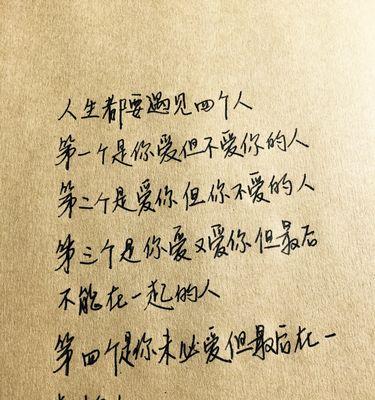 人生都要遇见四个人
第一个是你爱但不爱你的人
第二个是爱你但你不爱的人
第三个是你爱又爱你但最后
不能在一起的人
第四个是你未必爱但最后在一